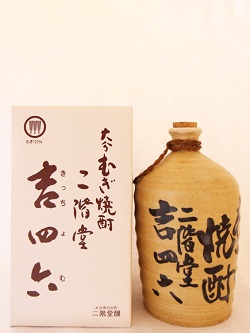 むぎ100%
大分むぎ焼酎
二階堂
吉四六
きっちょむ
二階堂醸
焼酎
二階堂
吉四六